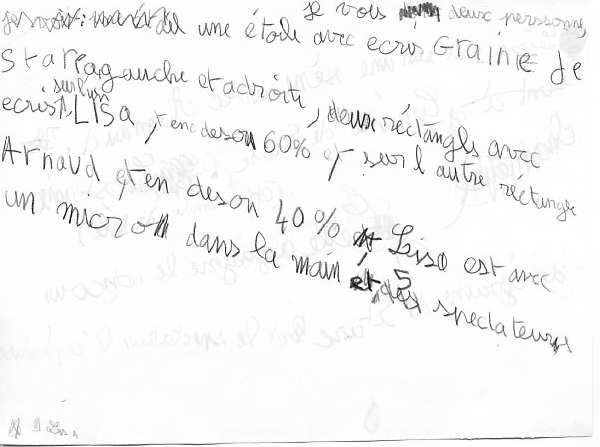 je vois deux personnes
une étoile avec ecris Graine de
Star a gauche et a droite, deux réctangle avec
ecrist sur l'un LISA, et en deson 60% et sur l'autre réctangle
Arnaud et en deson 40% Lisa est avec
un micro dans la main, 5
des spectateurs